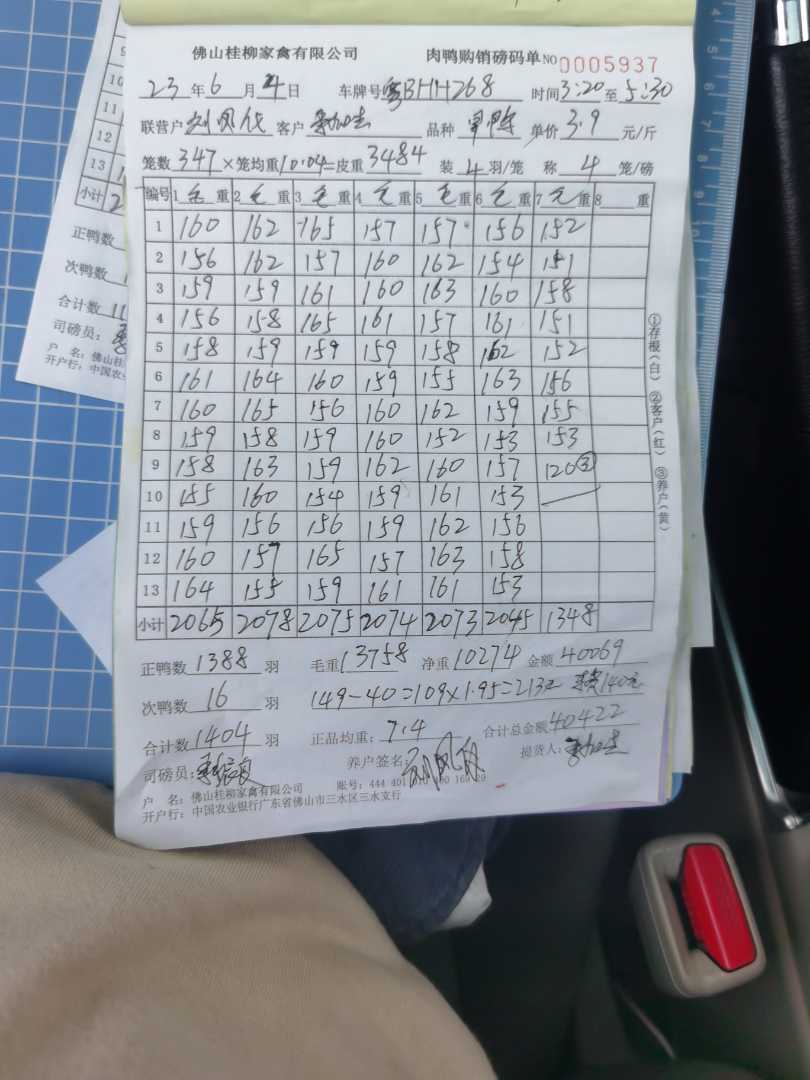 佛山桂柳家禽有限公司 肉鸭购销磅码单 NO 0005937
23 年 6 月 4 日 车牌号 粤BHH268 时间 3:20 至 5:30
联营户 客户 品种 单价 3.9 元/斤
笼数 347 × 笼均重 10.04 = 皮重 3484 装 4 羽/笼 称 4 笼/磅
编号 1 毛 重 2 毛 重 3 毛 重 4 毛 重 5 毛 重 6 毛 重 7 毛 重 8 重
1 160 162 165 157 157 156 152
2 156 162 157 160 162 154 151
3 159 159 161 160 163 160 158
4 156 158 165 161 157 161 151
5 158 159 159 159 158 162 152
6 161 164 160 159 155 163 156
7 160 165 156 160 162 159 155
8 159 158 159 160 152 153 153
9 158 163 159 162 160 157 120③
10 155 160 154 159 161 153
11 159 156 156 159 162 156
12 160 157 165 157 163 158
13 164 155 159 161 161 153
小计 2065 2078 2075 2074 2073 2045 1348
正鸭数 1388 羽 毛重 13758 净重 10274 金额 40069
次鸭数 16 羽 149-40=109×1.95=213元 140元
合计数 1404 羽 正品均重: 7.4 合计总金额 40422
司磅员: 养户签名: 提货人:
户 名: 佛山桂柳家禽有限公司 账号: 444 401
开户行: 中国农业银行广东省佛山市三水区三水支行
①存根(白) ②客户(红) ③养户(黄)
10
11
12
13
小计 2
正鸭数
次鸭数
合计数 11
司磅员:
户 名: 佛山桂
开户行: 中国农业